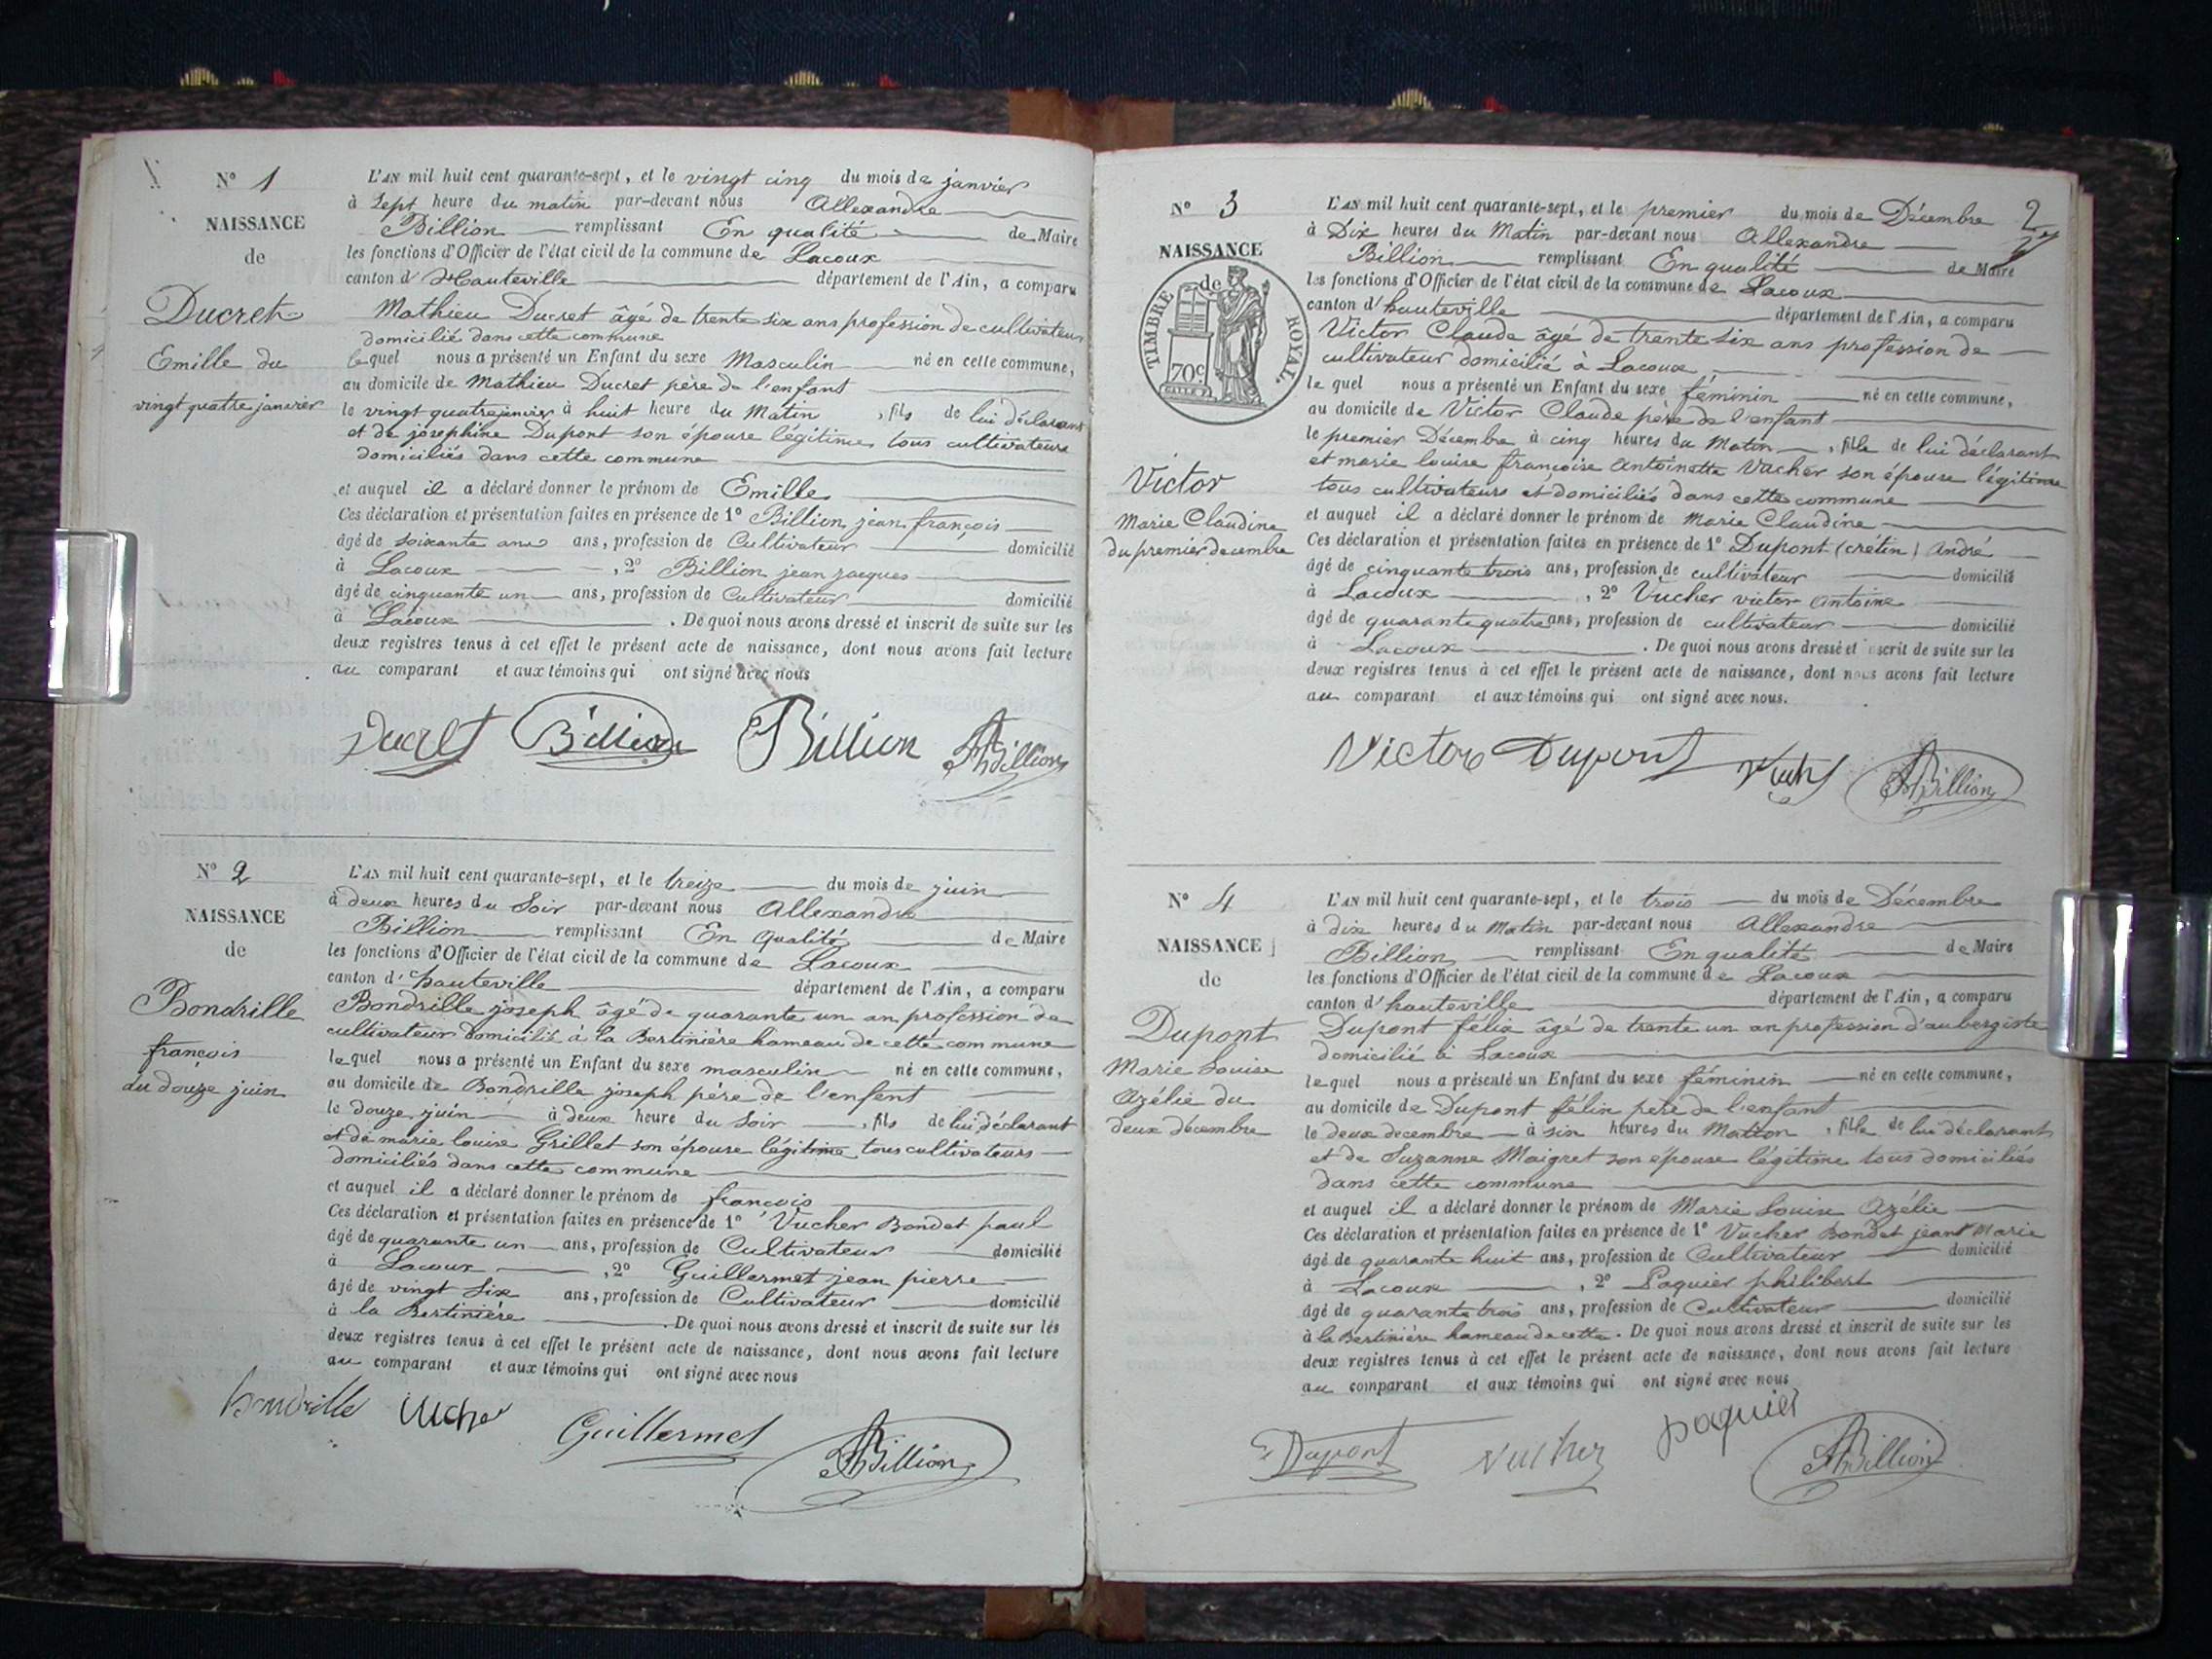 N° 1
NAISSANCE
de
Ducret
Emille du
vingt quatre janvier
L'AN mil huit cent quarante-sept, et le vingt cinq du mois de janvier
à Sept heure du matin par-devant nous Allexandre
Billion remplissant En qualité de Maire
les fonctions d'Officier de l'état civil de la commune de Lacoux
canton d'Hauteville département de l'Ain, a comparu
Mathieu Ducret âgé de trente six ans profession de cultivateur
domicilié dans cette commune
lequel nous a présenté un Enfant du sexe Masculin né en cette commune,
au domicile de Mathieu Ducret père de l'enfant
le vingt quatre janvier à huit heure du Matin, fils de lui déclarant
et de josephine Dupont son épouse légitime tous cultivateurs
domiciliés dans cette commune
et auquel il a déclaré donner le prénom de Emille
Ces déclaration et présentation faites en présence de 1° Billion jean françois
âgé de soixante ans ans, profession de Cultivateur domicilié
à Lacoux, 2° Billion jean jacques
âgé de cinquante un ans, profession de Cultivateur domicilié
à Lacoux. De quoi nous avons dressé et inscrit de suite sur les
deux registres tenus à cet effet le présent acte de naissance, dont nous avons fait lecture
au comparant et aux témoins qui ont signé avec nous
Ducret Billion Billion ABillion
N° 2
NAISSANCE
de
Bondrille
françois
du douze juin
L'AN mil huit cent quarante-sept, et le treize du mois de juin
à deux heures du Soir par-devant nous Allexandre
Billion remplissant En Qualité de Maire
les fonctions d'Officier de l'état civil de la commune de Lacoux
canton d'hauteville département de l'Ain, a comparu
Bondrille joseph âgé de quarante un an profession de
cultivateur domicilié à la Bertinière hameau de cette commune
lequel nous a présenté un Enfant du sexe masculin né en cette commune,
au domicile de Bondrille joseph père de l'enfent
le douze juin à deux heure du Soir, fils de lui déclarant
et de marie louise Grillet son épouse légitime tous cultivateurs
domiciliés dans cette commune
et auquel il a déclaré donner le prénom de françois
Ces déclaration et présentation faites en présence de 1° Vucher Bondet paul
âgé de quarante un ans, profession de Cultivateur domicilié
à Lacoux, 2° Guillermet jean pierre
âgé de vingt Six ans, profession de Cultivateur domicilié
à la Bertinière. De quoi nous avons dressé et inscrit de suite sur les
deux registres tenus à cet effet le présent acte de naissance, dont nous avons fait lecture
au comparant et aux témoins qui ont signé avec nous
bondrille Vucher Guillermet ABillion
2
N° 3
NAISSANCE
de
TIMBRE ROYAL.
70c
Victor
Marie Claudine
du premier decembre
L'AN mil huit cent quarante-sept, et le premier du mois de Décembre
à Dix heures du Matin par-devant nous Allexandre
Billion remplissant En qualité de Maire
les fonctions d'Officier de l'état civil de la commune de Lacoux
canton d'hauteville département de l'Ain, a comparu
Victor Claude âgé de trente six ans profession de
cultivateur domicilié à Lacoux
le quel nous a présenté un Enfant du sexe féminin né en cette commune,
au domicile de Victor Claude père de l'enfant
le premier Décembre à cinq heures du Matin, fille de lui déclarant
et marie louise françoise Antoinette Vucher son épouse légitime
tous cultivateurs et domiciliés dans cette commune
et auquel il a déclaré donner le prénom de Marie Claudine
Ces déclaration et présentation faites en présence de 1° Dupont (crétin) André
âgé de cinquante trois ans, profession de cultivateur domicilié
à Lacoux, 2° Vucher victor Antoine
âgé de quarante quatre ans, profession de cultivateur domicilié
à Lacoux. De quoi nous avons dressé et inscrit de suite sur les
deux registres tenus à cet effet le présent acte de naissance, dont nous avons fait lecture
au comparant et aux témoins qui ont signé avec nous.
Victor Dupont ABillion
N° 4
NAISSANCE
de
Dupont
Marie Louise
Azélie du
deux décembre
L'AN mil huit cent quarante-sept, et le trois du mois de Décembre
à dix heures du Matin par-devant nous Allexandre
Billion remplissant En qualité de Maire
les fonctions d'Officier de l'état civil de la commune de Lacoux
canton d'hauteville département de l'Ain, a comparu
Dupont félix âgé de trente un an profession d'aubergiste
domicilié à Lacoux
lequel nous a présenté un Enfant du sexe féminin né en cette commune,
au domicile de Dupont félin père de l'enfant
le deux decembre à six heures du Matton, fille de lui déclarant
et de Suzanne Maigret son épouse légitime tous domiciliés
dans cette commune
et auquel il a déclaré donner le prénom de Marie Louise Azélie
Ces déclaration et présentation faites en présence de 1° Vucher Bondet jean Marie
âgé de quarante huit ans, profession de Cultivateur domicilié
à Lacoux, 2° Paquier philibert
âgé de quarante trois ans, profession de Cultivateur domicilié
à la Bertinière hameau de cette. De quoi nous avons dressé et inscrit de suite sur les
deux registres tenus à cet effet le présent acte de naissance, dont nous avons fait lecture
au comparant et aux témoins qui ont signé avec nous
Dupont Vucher paquier ABillion